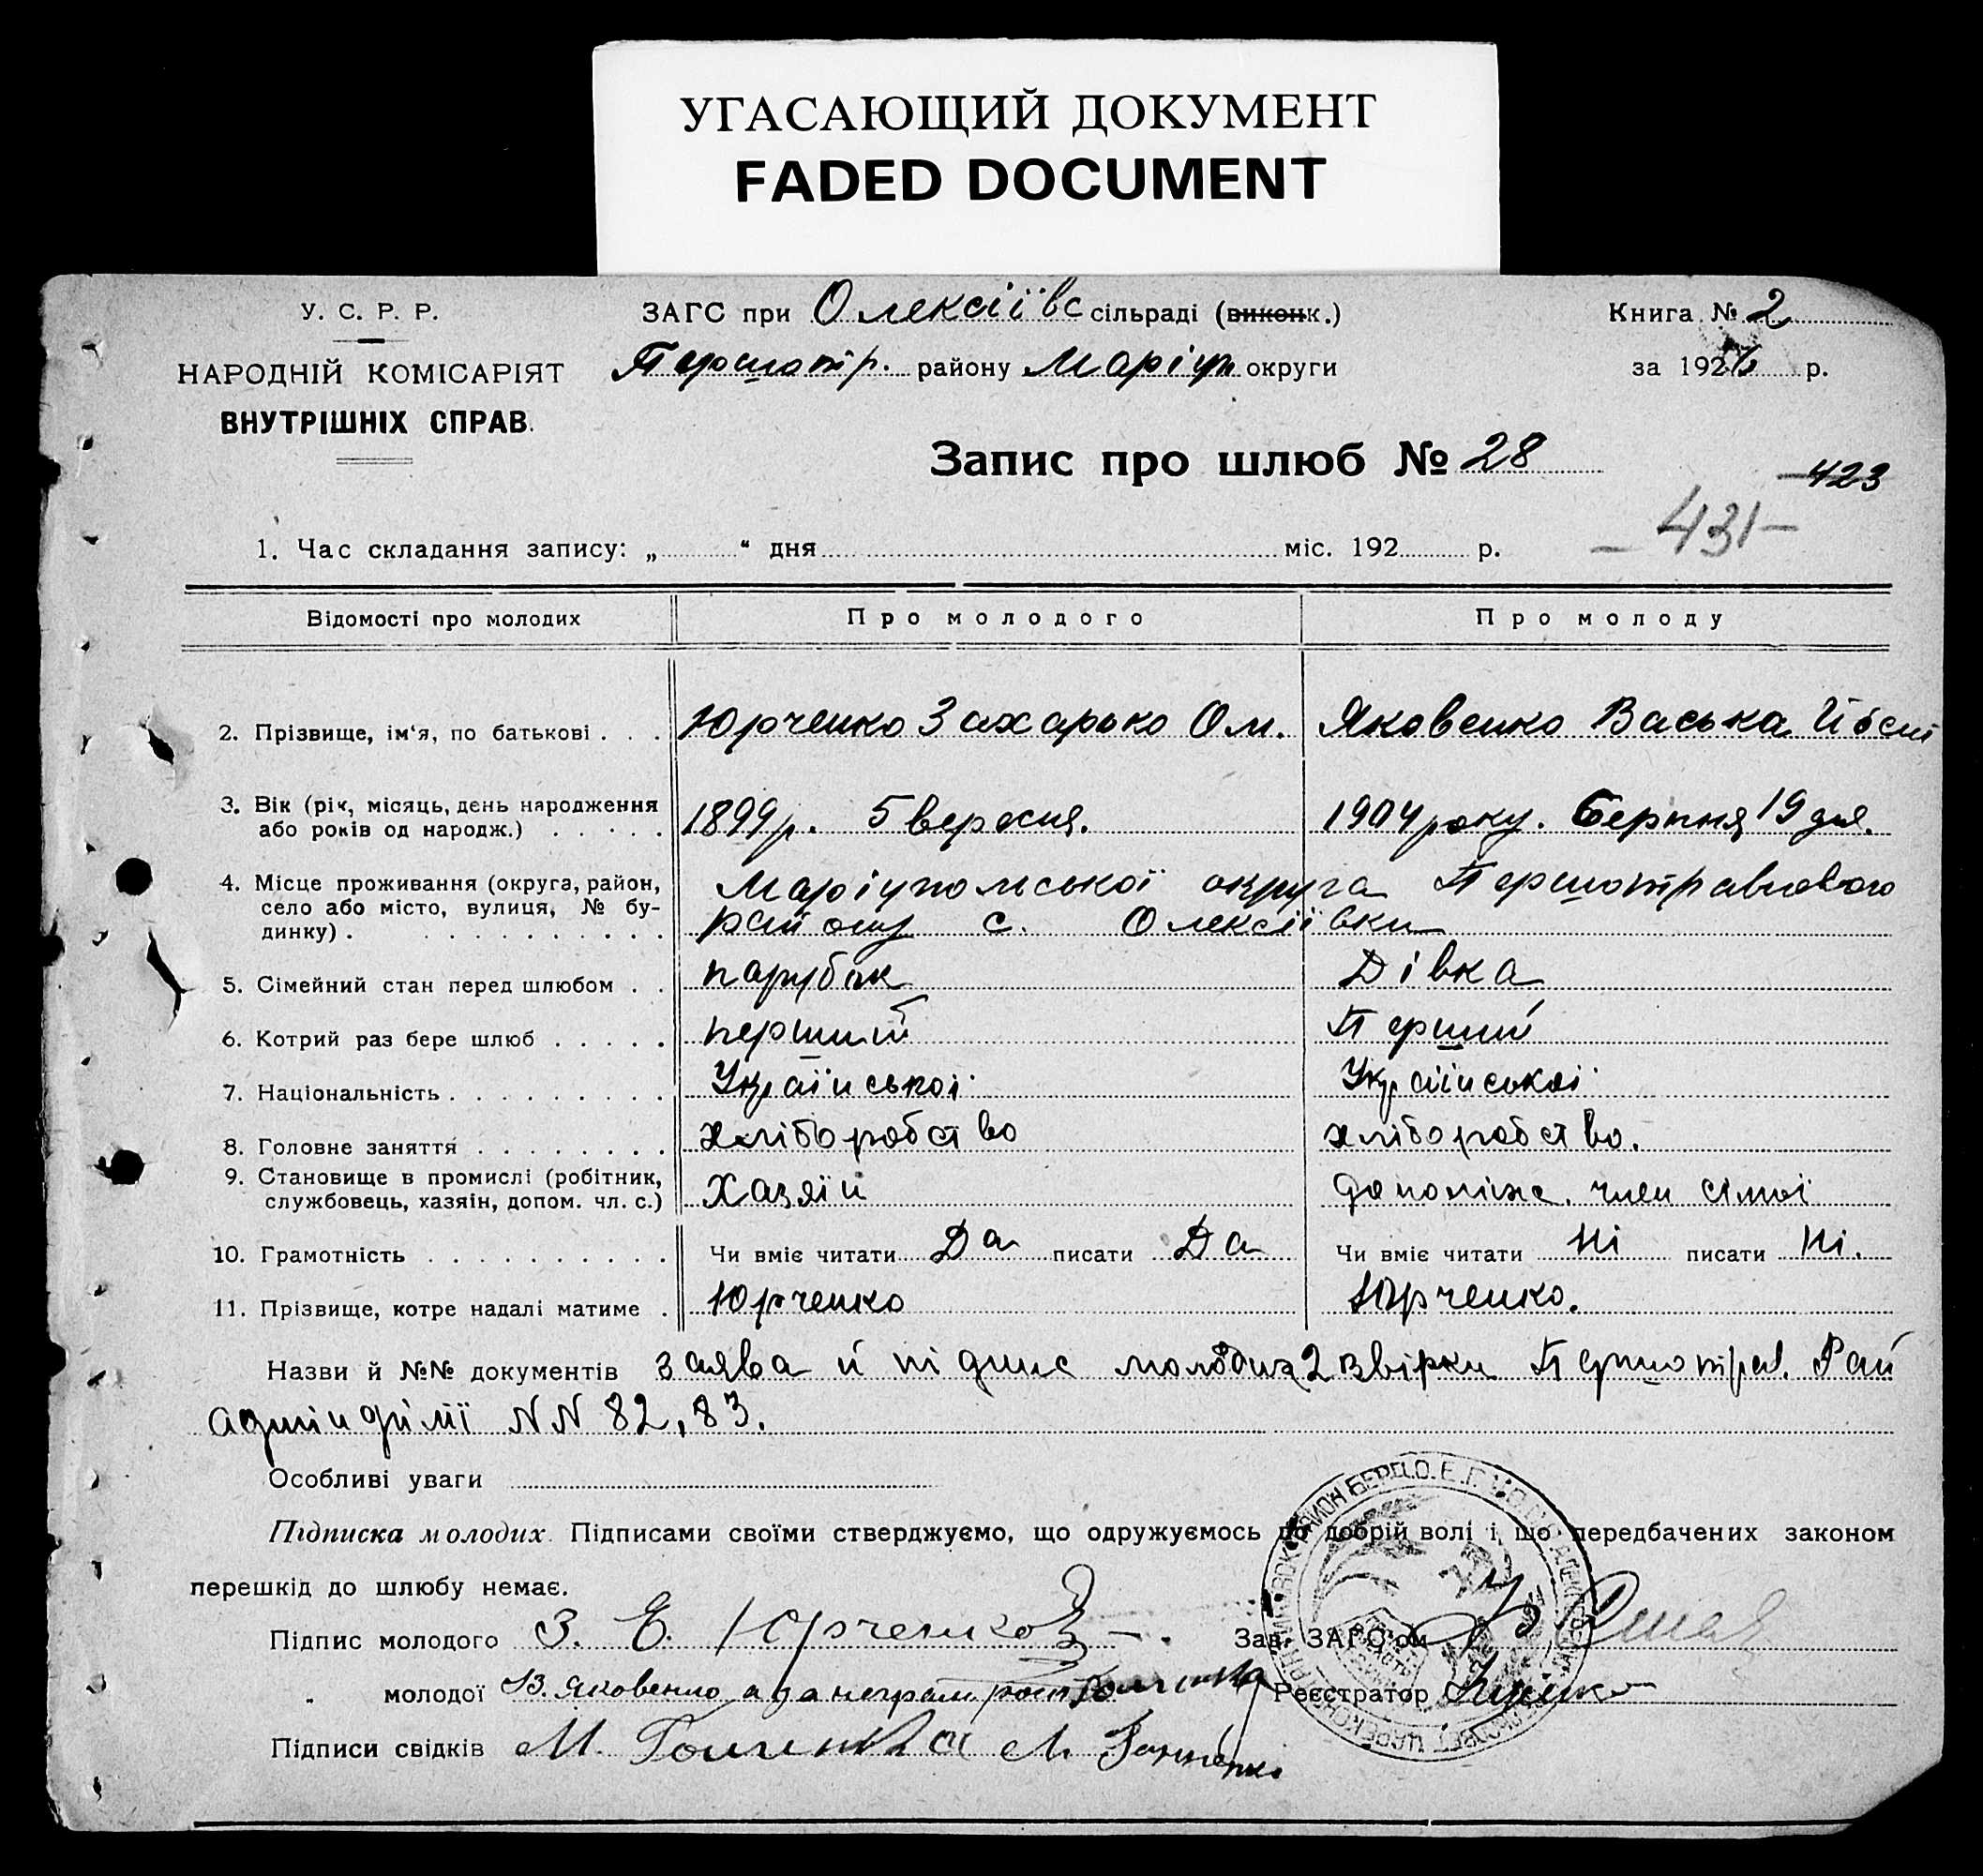 УГАСАЮЩИЙ ДОКУМЕНТ
FADED DOCUMENT
У. С. Р. Р.
НАРОДНІЙ КОМІСАРІЯТ
ВНУТРІШНІХ СПРАВ.
ЗАГС при Олексіївс сільраді (виконк.)
Першотр. району Маріуп округи
Книга № 2
за 1926 р.
Запис про шлюб № 28
423
— 431 —
1. Час складання запису: „ “ дня міс. 192 р.
Відомості про молодих Про молодого Про молоду
2. Прізвище, ім'я, по батькові . . . Юрченко Захарько Ом. Яковенко Васька
3. Вік (рік, місяць, день народження
або років од народж.) . . . . . 1899 р. 5 вересня. 1904 року. Серпня 19 дня.
4. Місце проживання (округа, район, Маріупольської округа Першотравневого
село або місто, вулиця, № бу-
динку) . . . . . . . . . . району с. Олексіївки
5. Сімейний стан перед шлюбом . . парубок Дівка
6. Котрий раз бере шлюб . . . . . перший Перший
7. Національність . . . . . . . . . Української Української
8. Головне заняття . . . . . . . . хліборобство хліборобство.
9. Становище в промислі (робітник,
службовець, хазяїн, допом. чл. с.) Хазяїн член сімої
10. Грамотність . . . . . . . . . . Чи вміє читати Да писати Да Чи вміє читати Ні писати Ні.
11. Прізвище, котре надалі матиме . Юрченко Юрченко.
Назви й №№ документів заява й підпис молодих 2 звірки Першотрав. Рай
адмін філії NN 82, 83.
Особливі уваги
Підписка молодих. Підписами своїми стверджуємо, що одружуємось по добрій волі і що передбачених законом
перешкід до шлюбу немає.
Підпис молодого З. Е. Юрченко Зав. ЗАГС'ом
„ молодої В. Яковенко а за неграм. Реєстратор
Підписи свідків М. М.